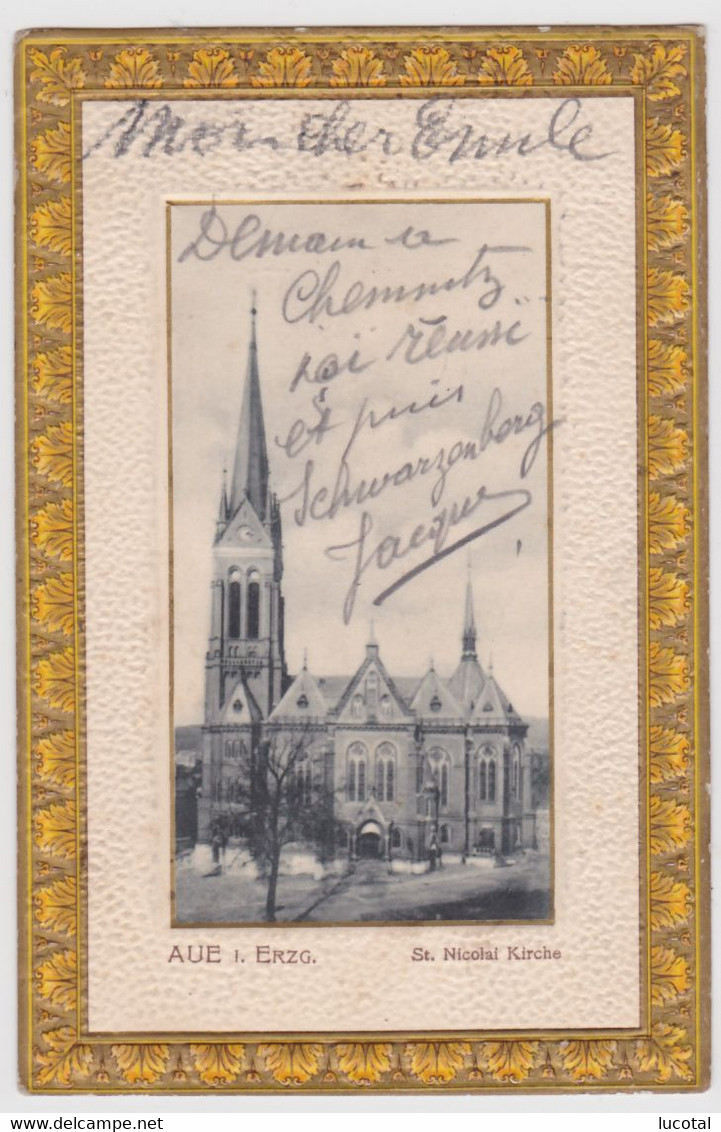 Mon cher Emile
Demain à
Chemnitz
j'ai réussi
et puis
Schwarzenberg
Jacques
AUE I. ERZG. St. Nicolai Kirche
delcampe.net
lucotal